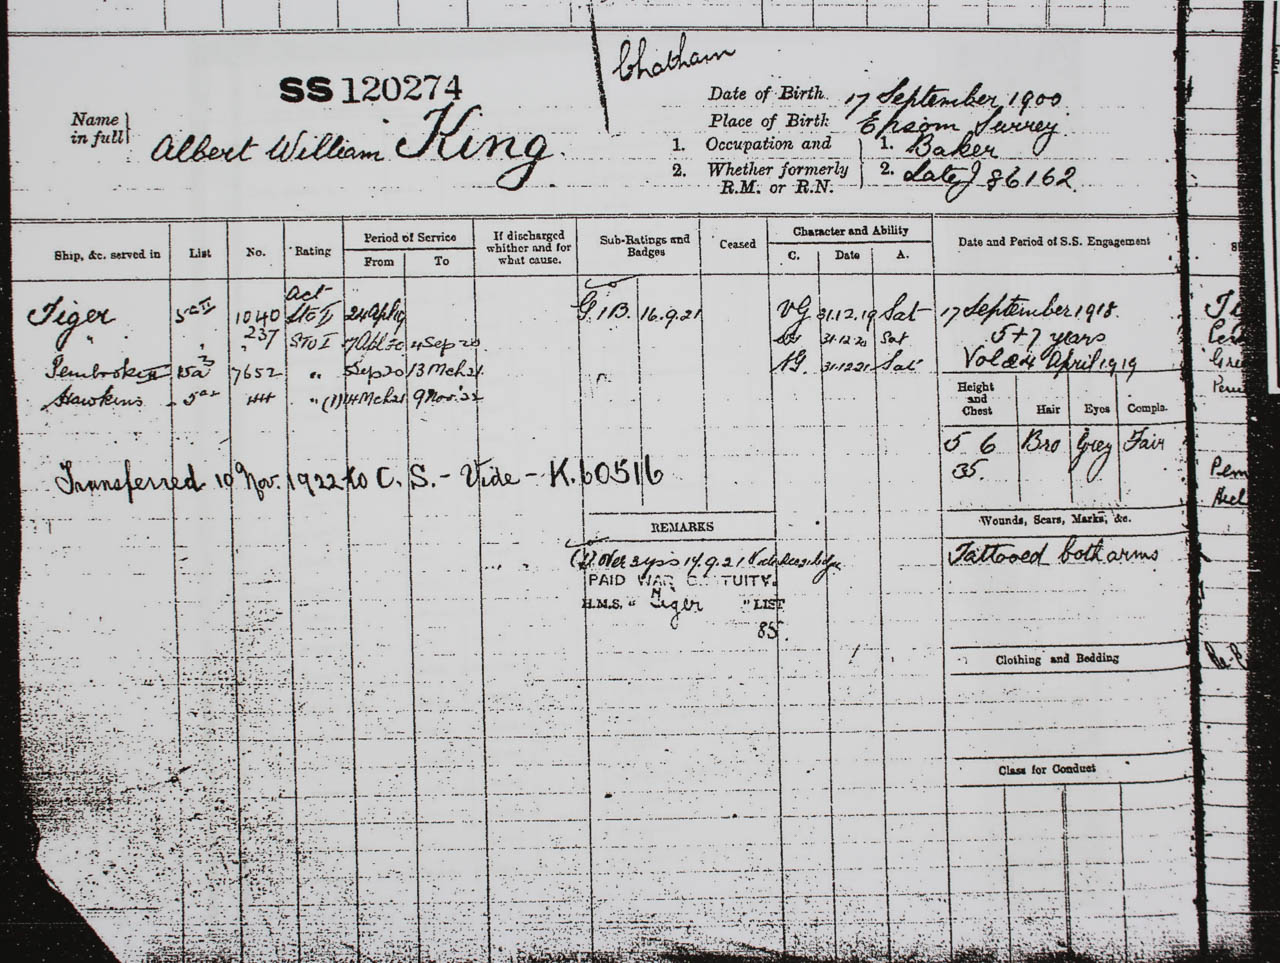 Chatham
SS 120274
Name in full
Albert William King.
Date of Birth 17 September 1900
Place of Birth Epsom Surrey
1. Occupation and 1. Baker
2. Whether formerly R.M. or R.N. 2. Late J 86162
Ship, &c. served in List No. Rating Period of Service From To If discharged whither and for what cause. Sub-Ratings and Badges Ceased Character and Ability C. Date A. Date and Period of S.S. Engagement
Act
Tiger 5a II 1040 Sto II 24 Apl 19 G 1 B. 16.9.21 VG 31.12.19 Sat 17 September 1918
" " 237 Sto I 4 Sep 20 31.12.20 Sat 5+7 years
Pembroke II 15a 3 7652 " 5 Sep 20 13 Mch 21 VG. 31.12.21 Sat Vol 24 April 1919
Hawkins 5a 44 " (1) 14 Mch 21 9 Nov. 22
Height and Chest Hair Eyes Complx.
5 6 Bro Grey Fair
35.
Transferred 10 Nov. 1922 to C. S. - Vide - K.60516
REMARKS
(1) Over 3 yrs 17.9.21
PAID WAR GRATUITY.
H.M.S. " Tiger " LIST
85.
Wounds, Scars, Marks, &c.
Tattooed both arms
Clothing and Bedding
Class for Conduct